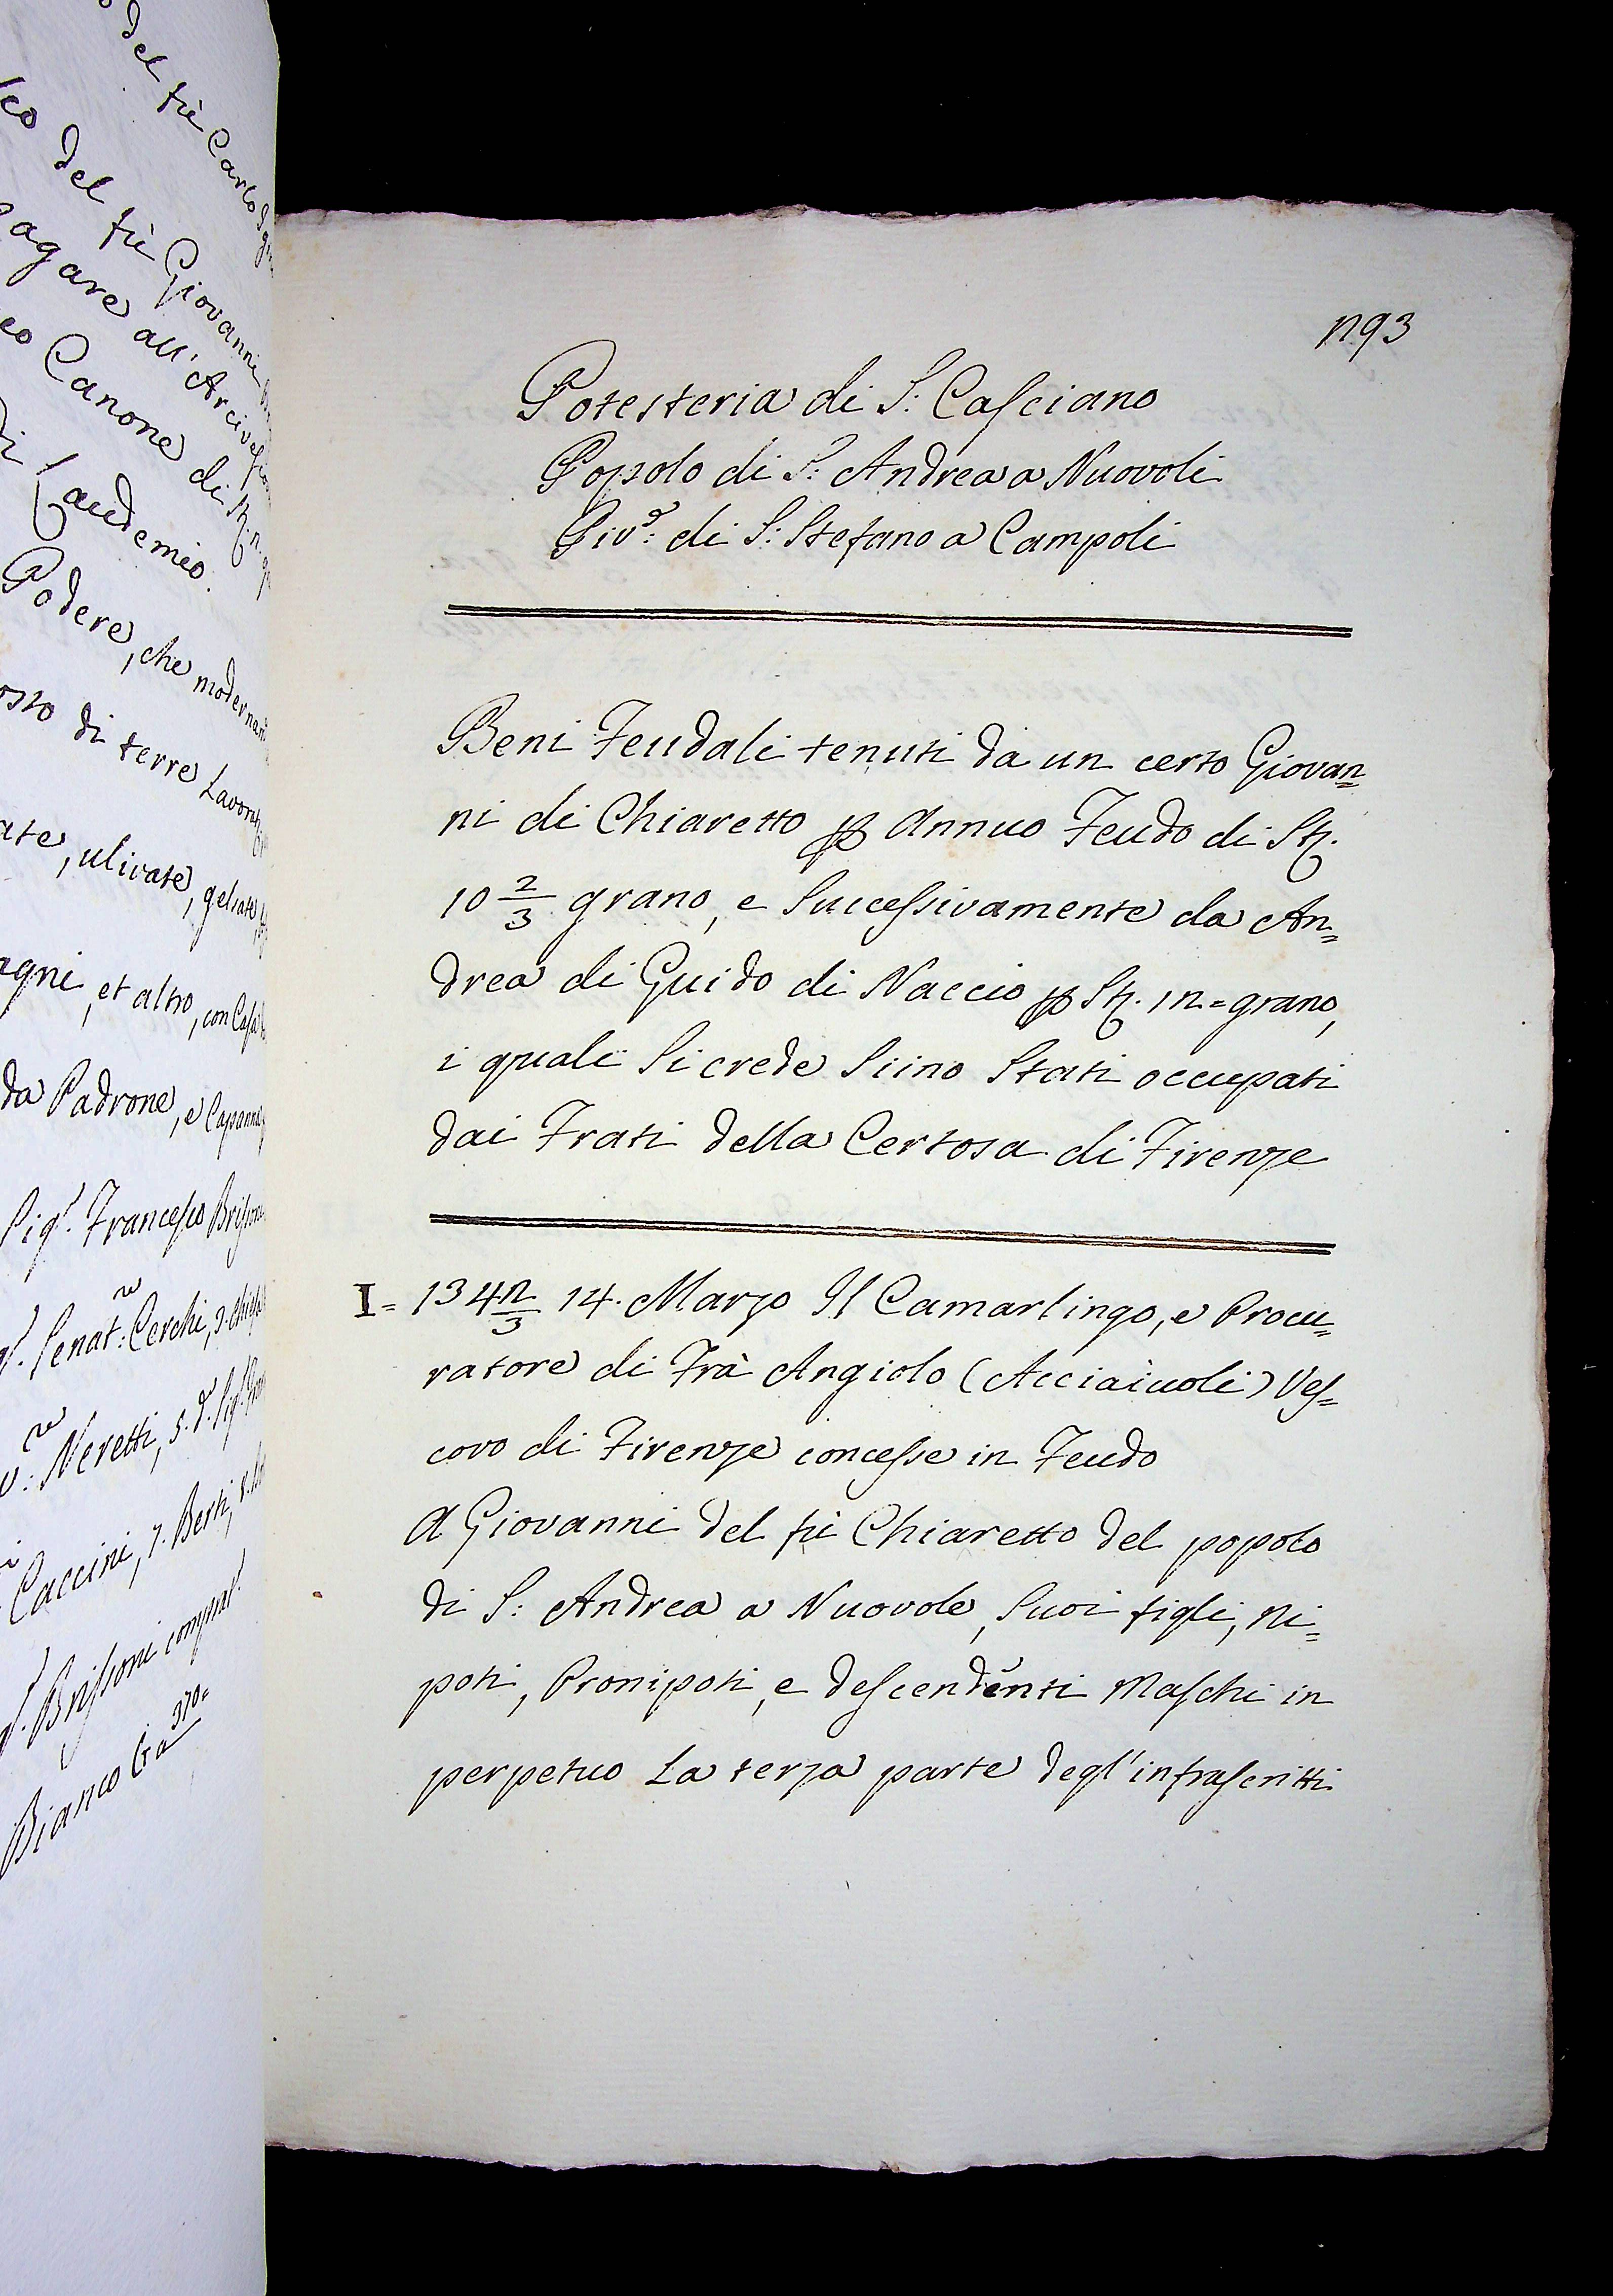 del fù Carlo
del fù Giovanni
pagare all'Arcives
Canone di St. n.
di Laudemio.
Podere, che modernam
di terre Lavorat
ulivate, gelsate
et altro, con Casa
da Padrone, e Capanna
Sigr. Francesco Brissoni
Senatre: Cerchi,
Neretti, 5. d.
Caccini, 7. Berti, 8.
Brissoni comprat
370=
Bianco Ca
293
Potesteria di S: Casciano
Popolo di S: Andrea a Nuovoli
Pive: di S: Stefano a Campoli
Beni Feudali tenuti da un certo Giovan=
ni di Chiaretto ꝑ annuo Feudo di St.
10 2/3 grano, e successivamente da An=
drea di Guido di Naccio ꝑ St. 12= grano,
i quali si crede siino stati occupati
dai Frati della Certosa di Firenze
I= 1342/3 14. Marzo Il Camarlingo, e Procu=
ratore di Frà Angiolo (Acciaiuoli) Ves=
covo di Firenze concesse in Feudo
A Giovanni del fù Chiaretto del popolo
di S: Andrea a Nuovole, suoi figli, Ni=
poti, Pronipoti, e descendenti Maschi in
perpetuo La terza parte degl'infrascritti